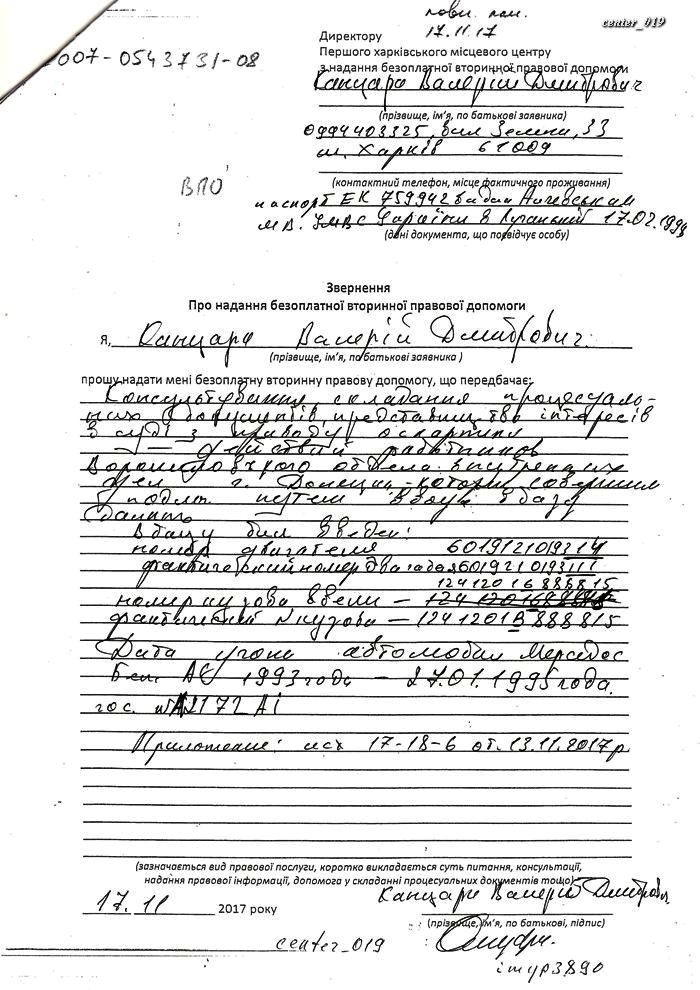 center_019
17.11.17
007-0543731-08
Директору
Першого харківського місцевого центру
з надання безоплатної вторинної правової допомоги
Канцара Валерій Дмитрович
(прізвище, ім'я, по батькові заявника)
0994403325, вул Зелена, 33
м. Харків 61009
(контактний телефон, місце фактичного проживання)
ВПО
паспорт ЕК 759942 видан
МВ. УМВС України в Луганській 17.02.199
(дані документа, що посвідчує особу)
Звернення
Про надання безоплатної вторинної правової допомоги
Я, Канцара Валерій Дмитрович.
(прізвище, ім'я, по батькові заявника )
прошу надати мені безоплатну вторинну правову допомогу, що передбачає:
Консультування, складання процесуаль-
них документів представництво інтересів
в суді з приводу оскартини
действий работников
Ворошиловского отдела внутренних
дел г. Донецка, которые совершили
подлог путем ввода в базу
данных
В базу был введен:
номер двигателя 60191210193214
фактический номер двигателя 60191210193111
12412016888815
номер кузова ввели —
фактический N кузова — 1241201В888815
Дата угона автомобиля Мерседес
Бенц 1993 года — 27.01.1995 года.
гос. N 2172 АІ
Приложение: исх 17-18-6 от. 13.11.2017р
(зазначається вид правової послуги, коротко викладається суть питання, консультації,
надання правової інформації, допомога у складанні процесуальних документів тощо)
17. 11 2017 року
Канцара Валерій Дмитрович
(прізвище, ім'я, по батькові, підпис)
center_019